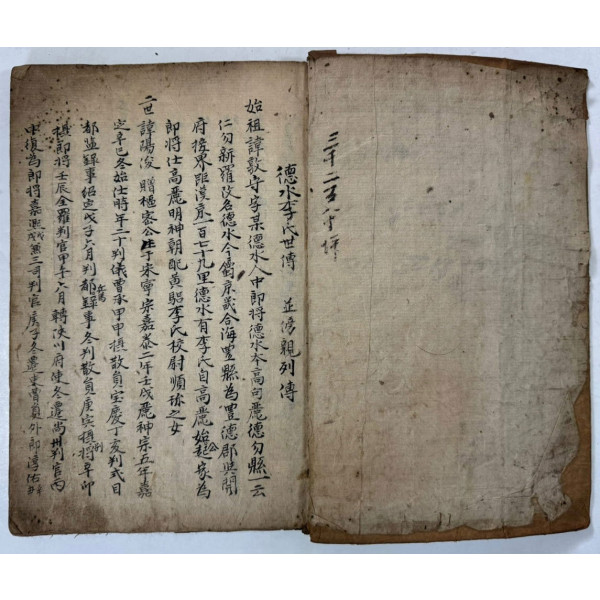 三千二百八十坪
德水李氏世傳 並滂親列傳
始祖諱敦守字某德水人中郎將德水本高句麗德勿縣一云
仁勿新羅改名德水今屬京畿合海豊縣為豊德郡與開
府接界距漢京一百七十九里德水有李氏自高麗始起公家為
郎將仕高麗明神朝配黃驪李氏校尉順珍之女
二世諱陽浚贈樞密公生于宋寧宗嘉泰二年壬戌麗神宗五年嘉
定辛巳冬始仕時年二十判儀曹承甲申攝散員宝慶丁亥判式目
都監錄事紹定戊子六月判都兵馬錄事冬判散員庚寅攝將辛卯
攝郎將壬辰全羅判官甲午六月轉陜川府使冬遷尚州判官丙
申復為郎將嘉熙戊戌兼三司判官庚子冬遷東曹員外郎淳祐